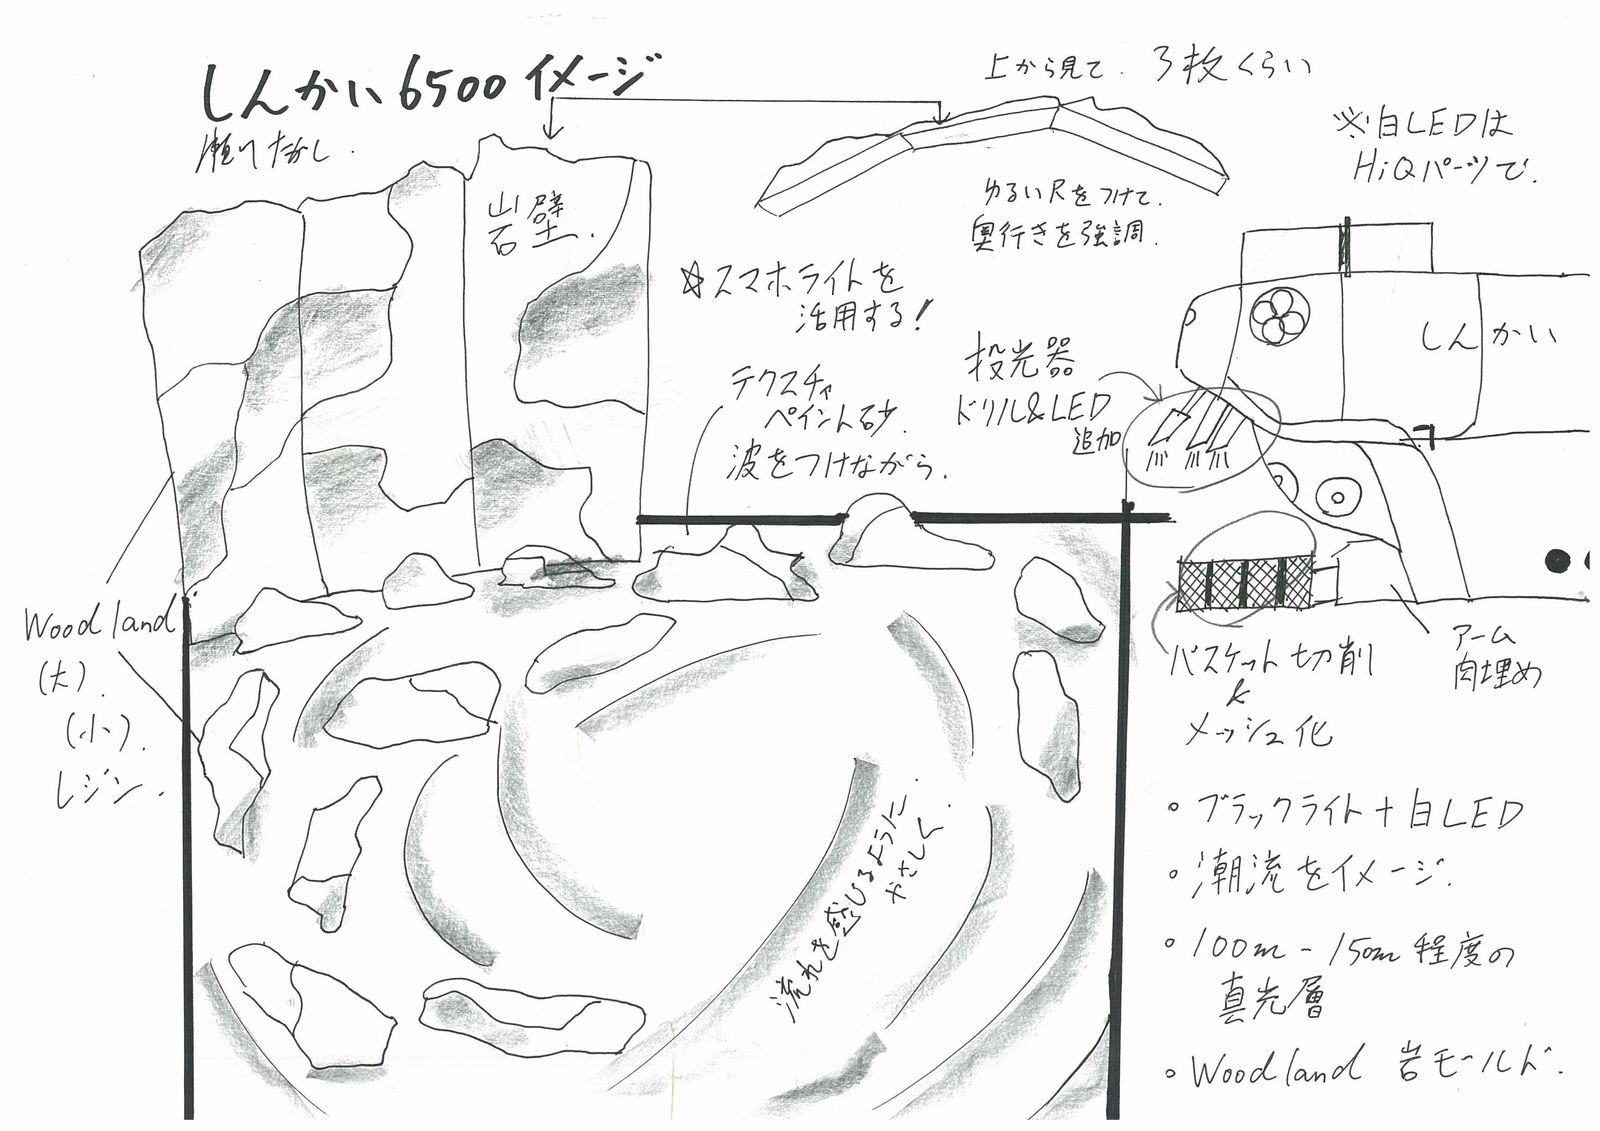 しんかい6500イメージ
上から見て. 3枚くらい
※白LEDは
HiQパーツで.
岩壁.
ゆるいRをつけて.
奥行きを強調.
☆スマホライトを
活用する!
テクスチャ
ペイント砂.
波をつけながら.
投光器
ドリル&LED
追加
しんかい
Woodland
(大).
(小).
レジン.
バスケット切削
&
メッシュ化
アーム
肉埋め
流れを感じるように.
やさしく.
・ブラックライト+白LED
・潮流をイメージ.
・100m-150m程度の
真光層
・Woodland 岩モールド.